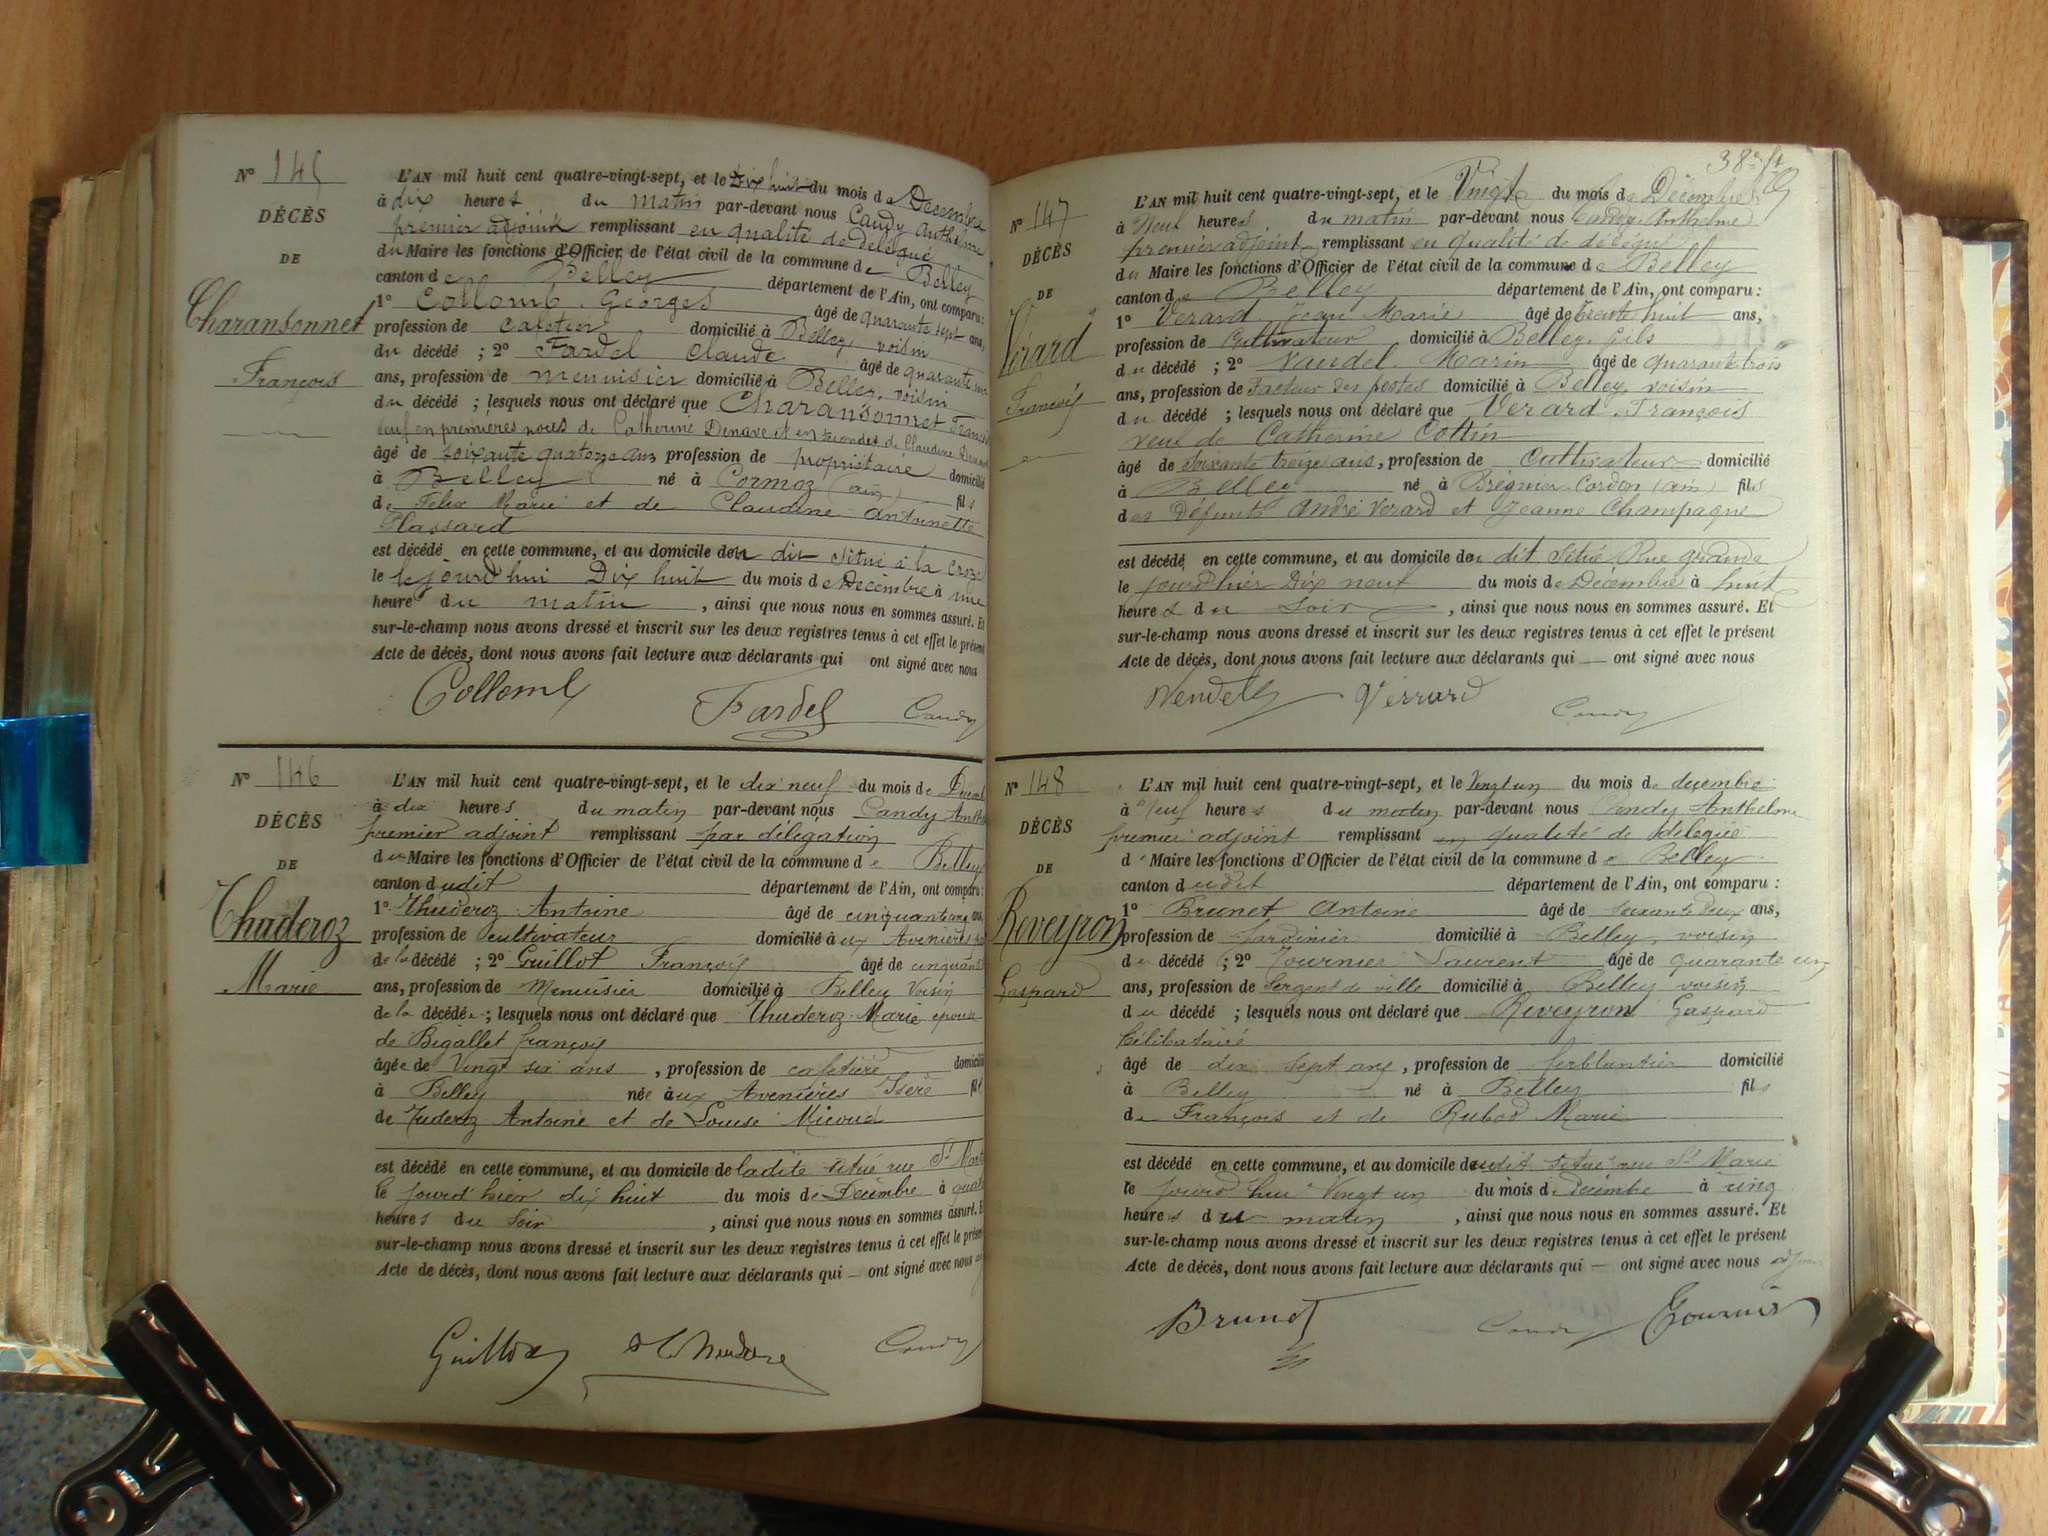 N° 145
DÉCÈS
DE
Charansonnet
François
L'AN mil huit cent quatre-vingt-sept, et le Dix huit du mois de Décembre
à dix heures du matin par-devant nous Candy Anthelme
premier adjoint remplissant en qualité de délégué
du Maire les fonctions d'Officier de l'état civil de la commune de Belley
canton de Belley département de l'Ain, ont comparu :
1° Collomb Georges âgé de quarante sept ans,
profession de cafetier domicilié à Belley, voisin
du décédé ; 2° Fardel Claude âgé de quarante
ans, profession de menuisier domicilié à Belley, voisin
du décédé ; lesquels nous ont déclaré que Charansonnet François
veuf en premières noces de Catherine Denave et en secondes de Claudine
âgé de soixante quatorze ans profession de propriétaire domicilié
à Belley né à Cormoz (ain) fils
de Félix Marie et de Claudine Antoinette
Plassard
est décédé en cette commune, et au domicile du dit situé à la Croze
le jourd'hui Dix huit du mois de Décembre à une
heure du matin, ainsi que nous nous en sommes assuré. Et
sur-le-champ nous avons dressé et inscrit sur les deux registres tenus à cet effet le présent
Acte de décès, dont nous avons fait lecture aux déclarants qui ont signé avec nous
Collomb Fardel Candy
N° 146
DÉCÈS
DE
Thuderoz
Marie
L'AN mil huit cent quatre-vingt-sept, et le dix neuf du mois de Décemb
à dix heures du matin par-devant nous Candy Anth
premier adjoint remplissant par délégation
du Maire les fonctions d'Officier de l'état civil de la commune de Belley
canton dudit département de l'Ain, ont comparu :
1° Thuderoz Antoine âgé de cinquante ans,
profession de cultivateur domicilié à ux Avenières
de la décédé ; 2° Guillot François âgé de cinquante
ans, profession de Menuisier domicilié à Belley Voisin
de la décédée ; lesquels nous ont déclaré que Thuderoz Marie épouse
de Bigallet françois
âgée de Vingt six ans, profession de cafetière domicilié
à Belley née à ux Avenières Isère fil
de Tuderoz Antoine et de Louise Micoud
est décédé en cette commune, et au domicile de ladite situé rue St Mart
le jourd'hier dix huit du mois de Décembre à quat
heures du soir, ainsi que nous nous en sommes assuré. Et
sur-le-champ nous avons dressé et inscrit sur les deux registres tenus à cet effet le présent
Acte de décès, dont nous avons fait lecture aux déclarants qui — ont signé avec nous
Guillot Candy
N° 147
DÉCÈS
DE
Vérard
François
L'AN mil huit cent quatre-vingt-sept, et le Vingt du mois de Décembre
à Neuf heures du matin par-devant nous Candy Anthelme
premier adjoint remplissant en qualité de délégué
du Maire les fonctions d'Officier de l'état civil de la commune de Belley
canton de Belley département de l'Ain, ont comparu :
1° Verard jean Marie âgé de trente huit ans,
profession de Cultivateur domicilié à Belley, fils
du décédé ; 2° Vaudel Marin âgé de quarante trois
ans, profession de Facteur des postes domicilié à Belley, voisin
du décédé ; lesquels nous ont déclaré que Verard François
veuf de Catherine Cottin
âgé de soixante treize ans, profession de Cultivateur domicilié
à Belley né à Brégnier Cordon (ain) fils
des Défunts André Verard et Jeanne Champagne
est décédé en cette commune, et au domicile du dit situé Rue grande
le jourd'hier Dix neuf du mois de Décembre à huit
heures du soir, ainsi que nous nous en sommes assuré. Et
sur-le-champ nous avons dressé et inscrit sur les deux registres tenus à cet effet le présent
Acte de décès, dont nous avons fait lecture aux déclarants qui — ont signé avec nous
Verrard Candy
N° 148
DÉCÈS
DE
Reveyron
Gaspard
L'AN mil huit cent quatre-vingt-sept, et le Vingt un du mois de decembre
à Neuf heures du matin par-devant nous Candy Anthelme
premier adjoint remplissant en qualité de délégué
d Maire les fonctions d'Officier de l'état civil de la commune de Belley
canton dudit département de l'Ain, ont comparu :
1° Brunet Antoine âgé de soixante deux ans,
profession de Jardinier domicilié à Belley, voisin
du décédé ; 2° Tournier Laurent âgé de quarante un
ans, profession de Sergent de ville domicilié à Belley voisin
du décédé ; lesquels nous ont déclaré que Reveyron Gaspard
Célibataire
âgé de dix sept ans, profession de ferblantier domicilié
à Belley né à Belley fils
de François et de Rubod Marie
est décédé en cette commune, et au domicile dudit situé rue Ste Marie
le jourd'hui Vingt un du mois de Décembre à cinq
heures du matin, ainsi que nous nous en sommes assuré. Et
sur-le-champ nous avons dressé et inscrit sur les deux registres tenus à cet effet le présent
Acte de décès, dont nous avons fait lecture aux déclarants qui — ont signé avec nous
Brunet Candy Tournier